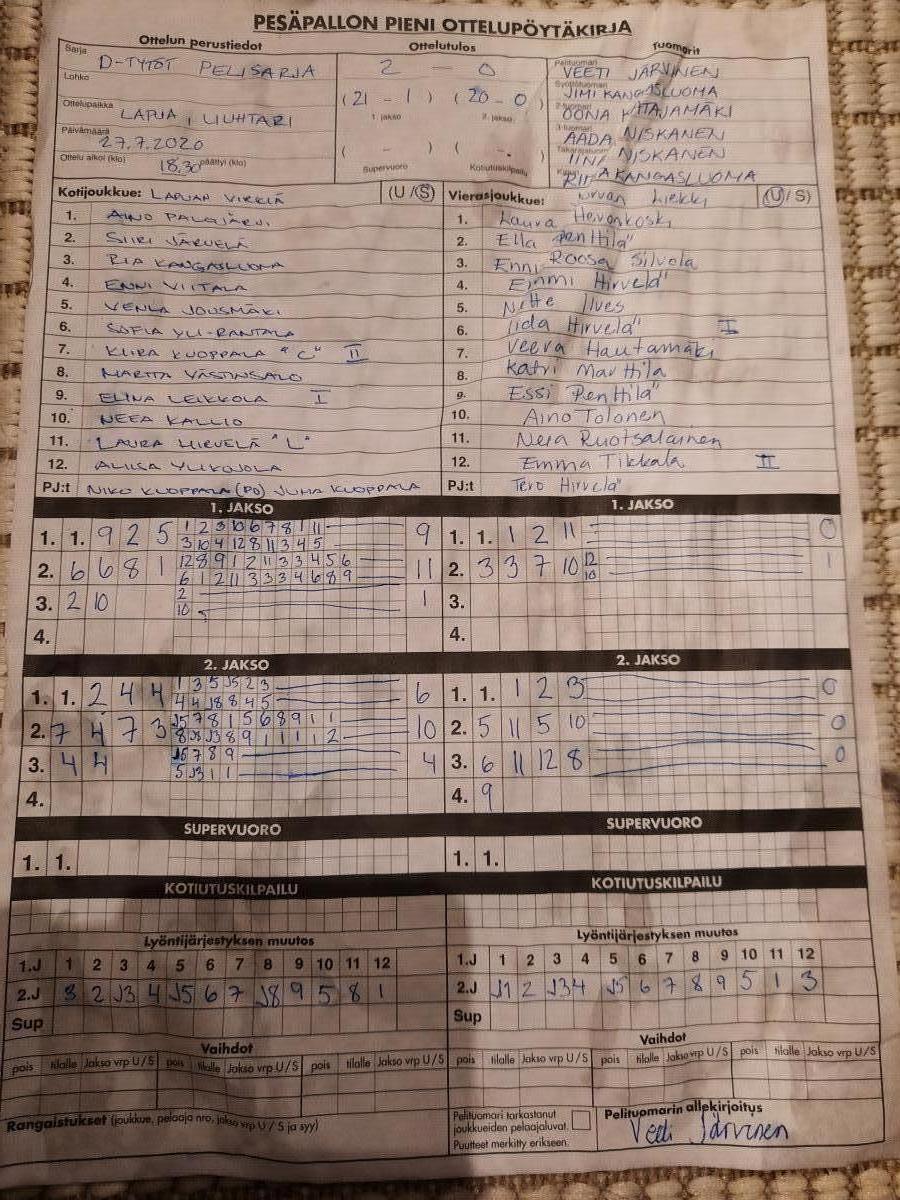 PESÄPALLON PIENI OTTELUPÖYTÄKIRJA
Ottelun perustiedot
Ottelutulos
Tuomarit
Sarja D-TYTÖT PELISARJA
Lohko
Ottelupaikka LAPUA, LIUHTARI
Päivämäärä 27.7.2020
Ottelu alkoi (klo) 18.30 päättyi (klo)
2 - 0
(21 - 1) (20 - 0)
1. jakso 2. jakso
( - ) ( - )
Supervuoro Kotiutuskilpailu
Pelituomari VEETI JÄRVINEN
Syöttötuomari JIMI KANGASLUOMA
2-tuomari OONA VITAJAMÄKI
3-tuomari AADA NISKANEN
Takarajatuomari IINA NISKANEN
RIIA KANGASLUOMA
Kotijoukkue: LAPUAN VIRKIÄ (U/S)
1. AINO PALOJÄRVI
2. SIIRI JÄRVELÄ
3. RIA KANGASLUOMA
4. ENNI VIITALA
5. VENLA JOUSMÄKI
6. SOFIA YLI-RANTALA
7. KIIRA KUOPPALA "C" II
8. MARTTA VÄSTINSALO
9. ELINA LEIKKOLA I
10. NEEA KALLIO
11. LAURA HIRVELÄ "L"
12. ALIISA YLIKOJOLA
PJ:t NIKO KUOPPALA (PO) JUHA KUOPPALA
Vierasjoukkue: Liekki (U/S)
1. Laura Hevonkoski
2. Ella Penttilä
3. Enni Roosa Silvola
4. Emmi Hirvelä
5. Nette Ilves
6. Iida Hirvelä I
7. Veera Hautamäki
8. Katri Marttila
9. Essi Penttilä
10. Aino Tolonen
11. Neia Ruotsalainen
12. Emma Tikkala II
PJ:t Tero Hirvelä
1. JAKSO
1. 1. 9 2 5 1 2 3 10 6 7 8 1 11 9
3 10 4 12 8 11 3 4 5
2. 6 6 8 1 12 8 9 1 2 11 3 3 4 5 6 11
6 1 2 11 3 3 3 4 6 8 9
3. 2 10 2 1
10
4.
1. JAKSO
1. 1. 1 2 11 0
2. 3 3 7 10 12 1
10
3.
4.
2. JAKSO
1. 1. 2 4 4 1 3 5 J5 2 3 6
4 4 J8 8 4 5
2. 7 4 7 3 J5 7 8 1 5 6 8 9 1 1 10
8 J3 J3 8 9 1 1 1 1 2
3. 4 4 J5 7 8 9 4
5 J3 1 1
4.
2. JAKSO
1. 1. 1 2 3 0
2. 5 11 5 10 0
3. 6 11 12 8 0
4. 9
SUPERVUORO
1. 1.
SUPERVUORO
1. 1.
KOTIUTUSKILPAILU
KOTIUTUSKILPAILU
Lyöntijärjestyksen muutos
1.J 1 2 3 4 5 6 7 8 9 10 11 12
2.J 3 2 J3 4 J5 6 7 J8 9 5 8 1
Sup
Lyöntijärjestyksen muutos
1.J 1 2 3 4 5 6 7 8 9 10 11 12
2.J J1 2 J3 4 J5 6 7 8 9 5 1 3
Sup
Vaihdot
pois tilalle Jakso vrp U/S pois tilalle Jakso vrp U/S pois tilalle Jakso vrp U/S
Vaihdot
pois tilalle Jakso vrp U/S pois tilalle Jakso vrp U/S pois tilalle Jakso vrp U/S
Rangaistukset (joukkue, pelaaja nro, jakso vrp U / S ja syy)
Pelituomari tarkastanut
joukkueiden pelaajaluvat.
Puutteet merkitty erikseen.
Pelituomarin allekirjoitus
Veeti Järvinen